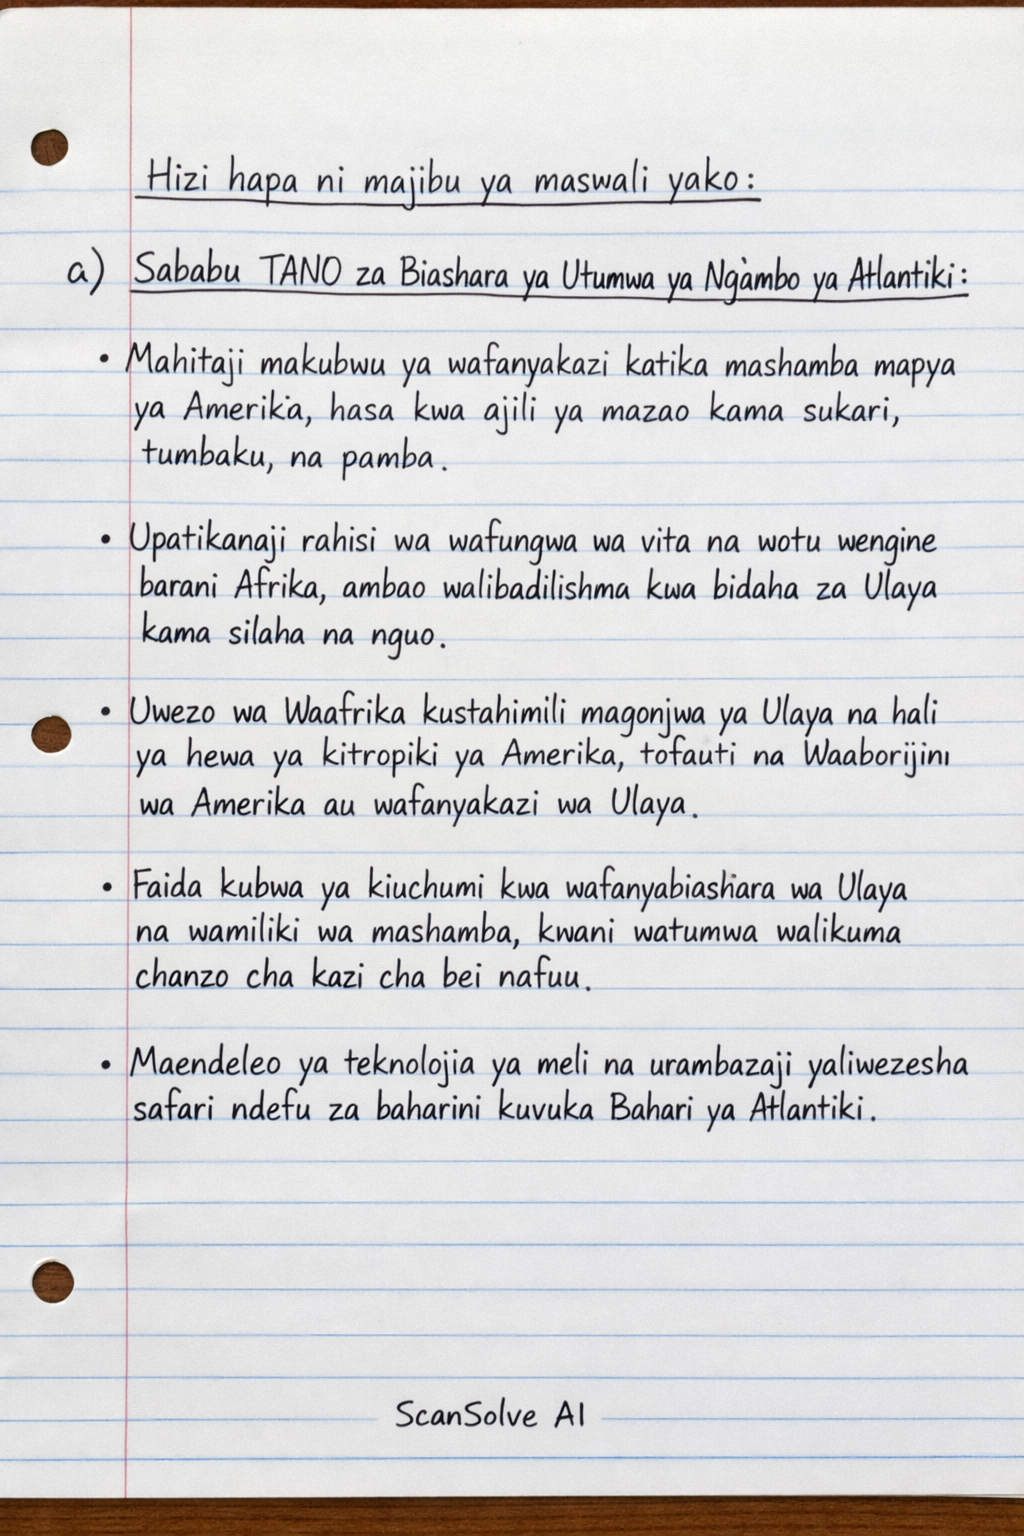 Hizi hapa ni majibu ya maswali yako:
a) Sababu TANO za Biashara ya Utumwa ya Ng'ambo ya Atlantiki:
• Mahitaji makubwu ya wafanyakazi katika mashamba mapya
ya Amerika, hasa kwa ajili ya mazao kama sukari,
tumbaku, na pamba.
• Upatikanaji rahisi wa wafungwa wa vita na wotu wengine
barani Afrika, ambao walibadilishma kwa bidaha za Ulaya
kama silaha na nguo.
• Uwezo wa Waafrika kustahimili magonjwa ya Ulaya na hali
ya hewa ya kitropiki ya Amerika, tofauti na Waaborijini
wa Amerika au wafanyakazi wa Ulaya.
• Faida kubwa ya kiuchumi kwa wafanyabiashara wa Ulaya
na wamiliki wa mashamba, kwani watumwa walikuma
chanzo cha kazi cha bei nafuu.
• Maendeleo ya teknolojia ya meli na urambazaji yaliwezesha
safari ndefu za baharini kuvuka Bahari ya Atlantiki.
ScanSolve AI